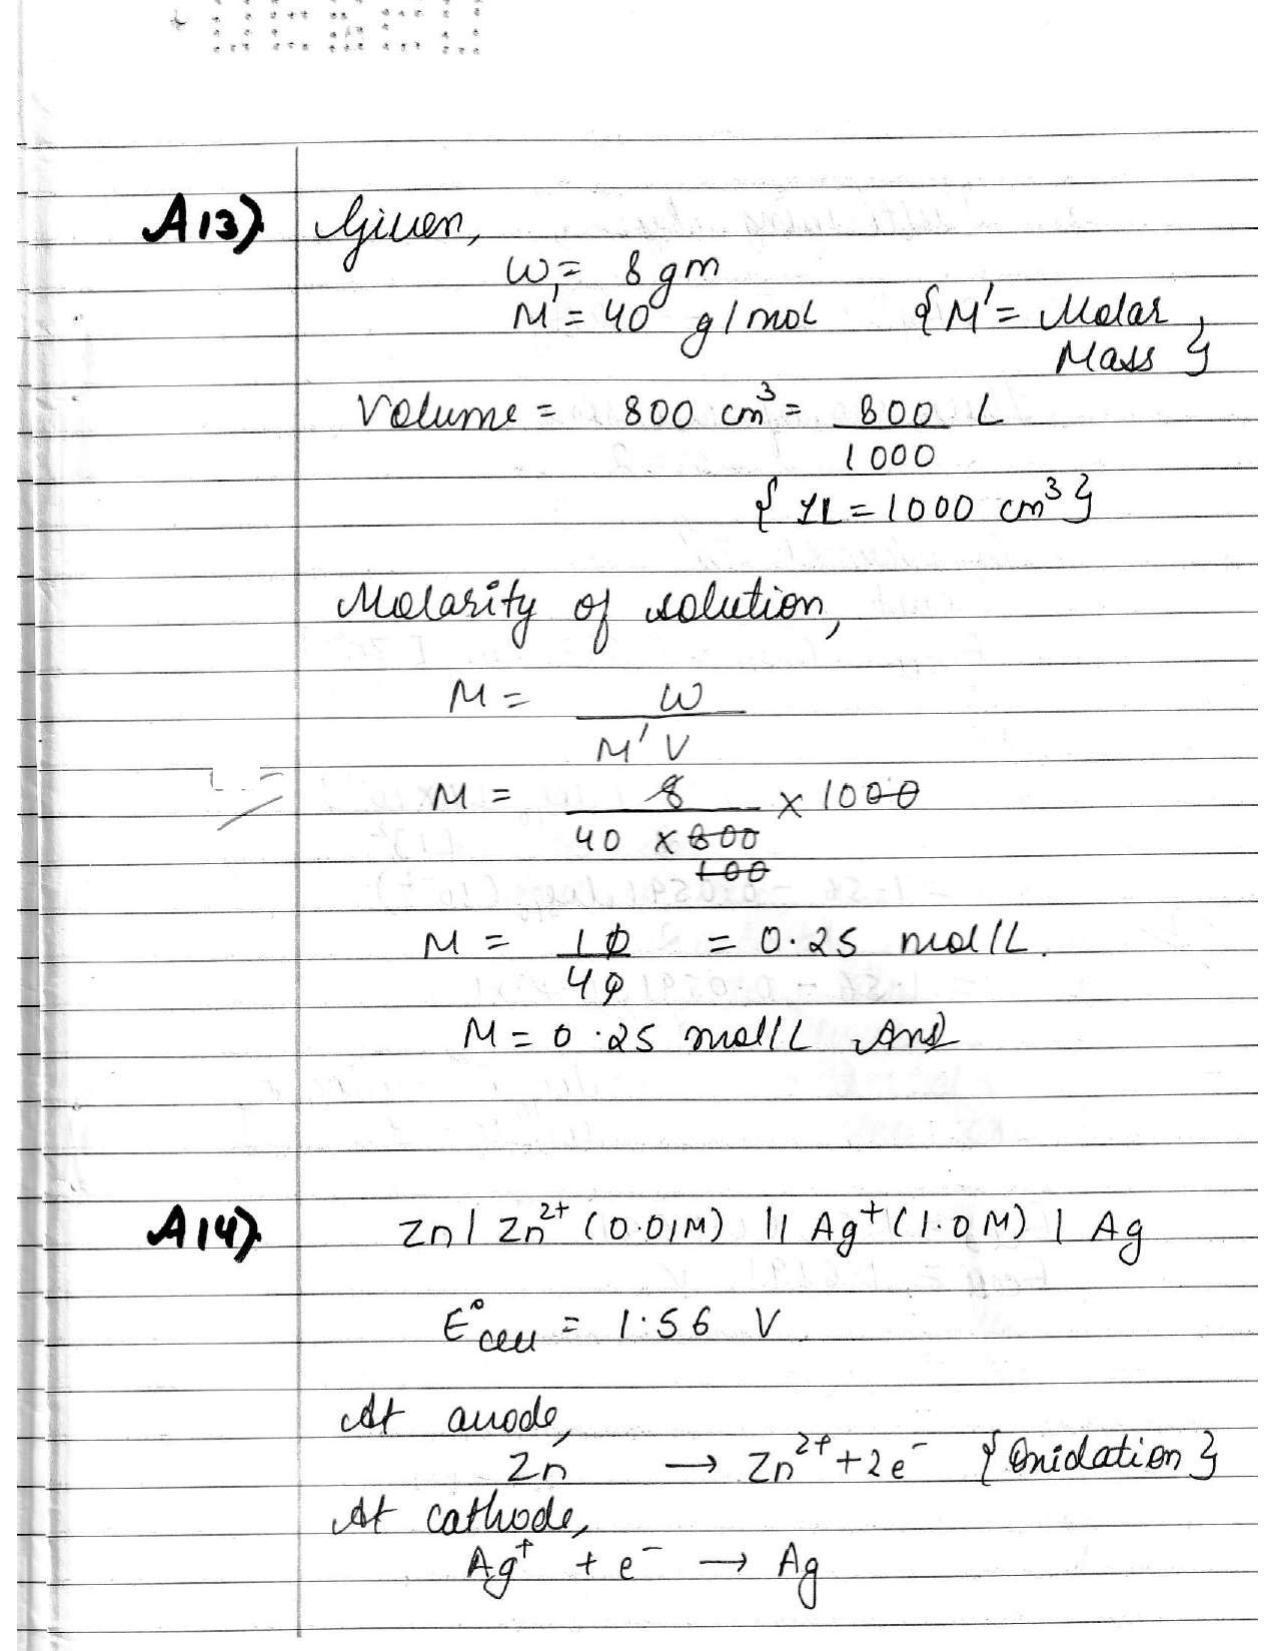 A13) Given,
W = 8 gm
M' = 40 g/mol {M' = Molar
Mass}
Volume = 800 cm³ = 800 L
1000
{1L = 1000 cm³}
Molarity of solution,
M = W
M' V
M = 8 × 1000
40 × 800
100
M = 10 = 0.25 mol/L.
40
M = 0.25 mol/L Ans
A14) Zn | Zn²⁺ (0.01M) || Ag⁺ (1.0M) | Ag
E°cell = 1.56 V
At anode,
Zn → Zn²⁺ + 2e⁻ {Oxidation}
At cathode,
Ag⁺ + e⁻ → Ag